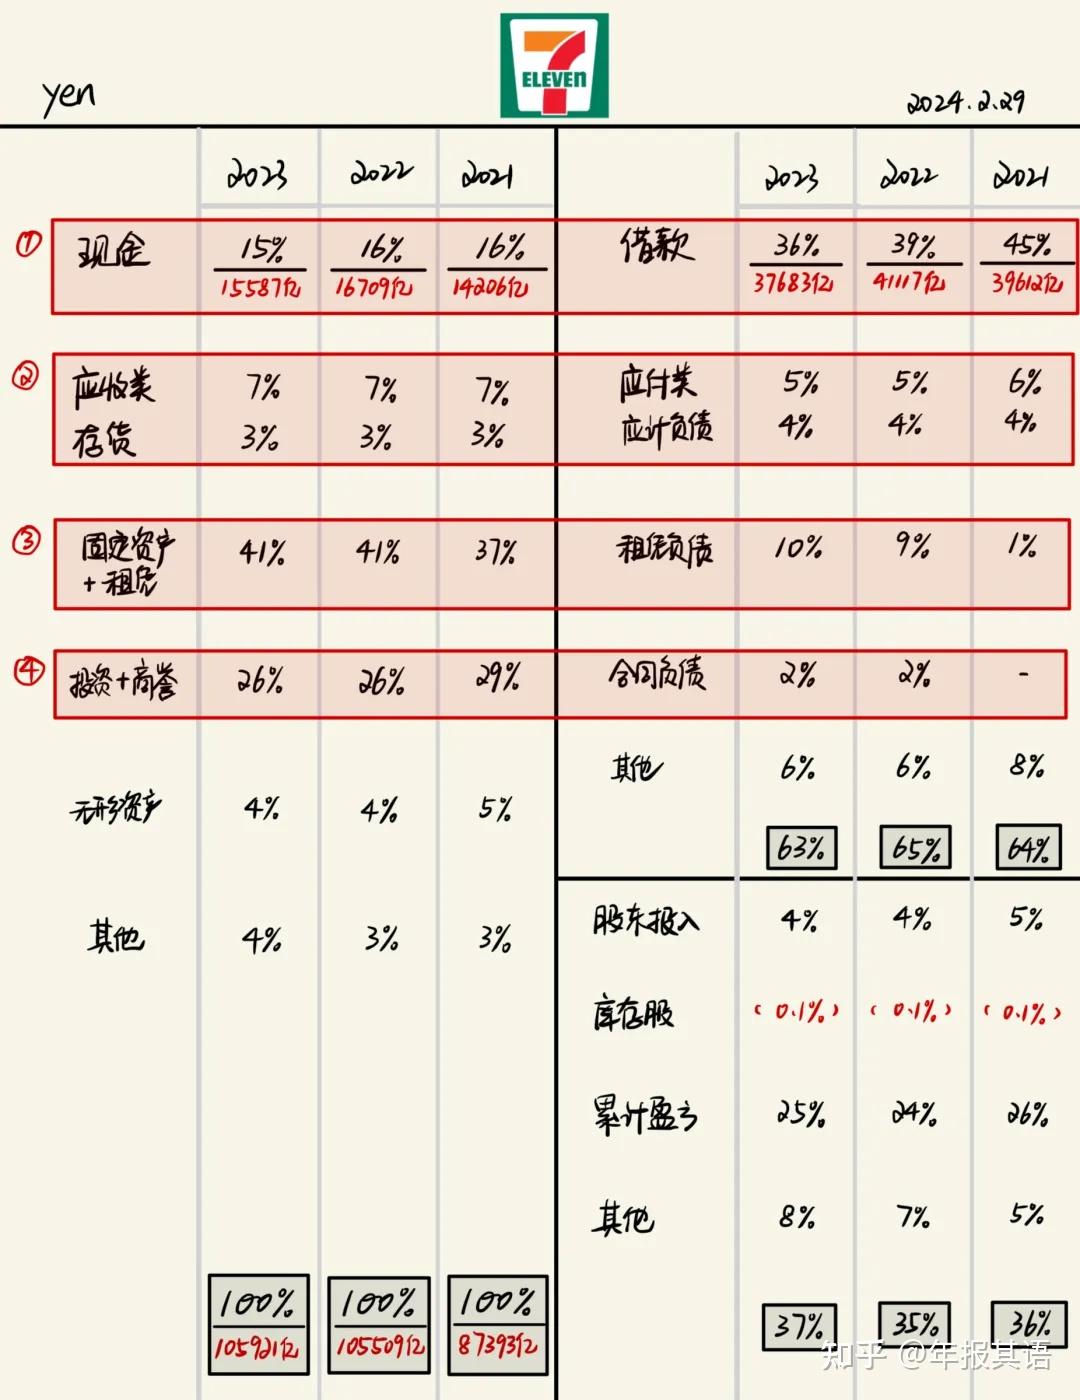 7
ELEVEN
yen
2024.2.29
2023 2022 2021 2023 2022 2021
① 现金 15% 16% 16% 借款 36% 39% 45%
15587亿 16709亿 14206亿 37683亿 41117亿 39612亿
② 应收类 7% 7% 7% 应付类 5% 5% 6%
存货 3% 3% 3% 应计负债 4% 4% 4%
③ 固定资产 41% 41% 37% 租赁负债 10% 9% 1%
+租赁
④ 投资+商誉 26% 26% 29% 合同负债 2% 2% -
其他 6% 6% 8%
无形资产 4% 4% 5%
63% 65% 64%
其他 4% 3% 3% 股东投入 4% 4% 5%
库存股 (0.1%) (0.1%) (0.1%)
累计盈亏 25% 24% 26%
其他 8% 7% 5%
100% 100% 100%
105921亿 105509亿 87393亿 37% 35% 36%
知乎 @年报其语